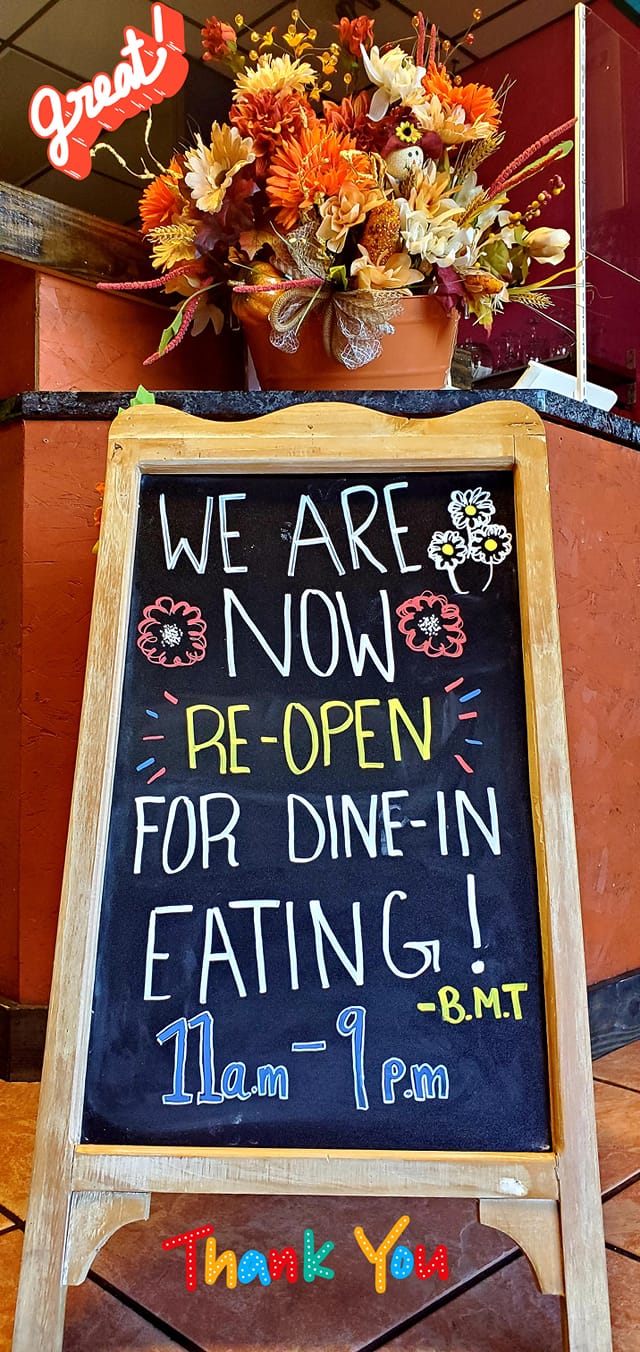 great!
WE ARE
NOW
RE-OPEN
FOR DINE-IN
EATING!
-B.M.T
11a.m - 9 p.m
Thank You